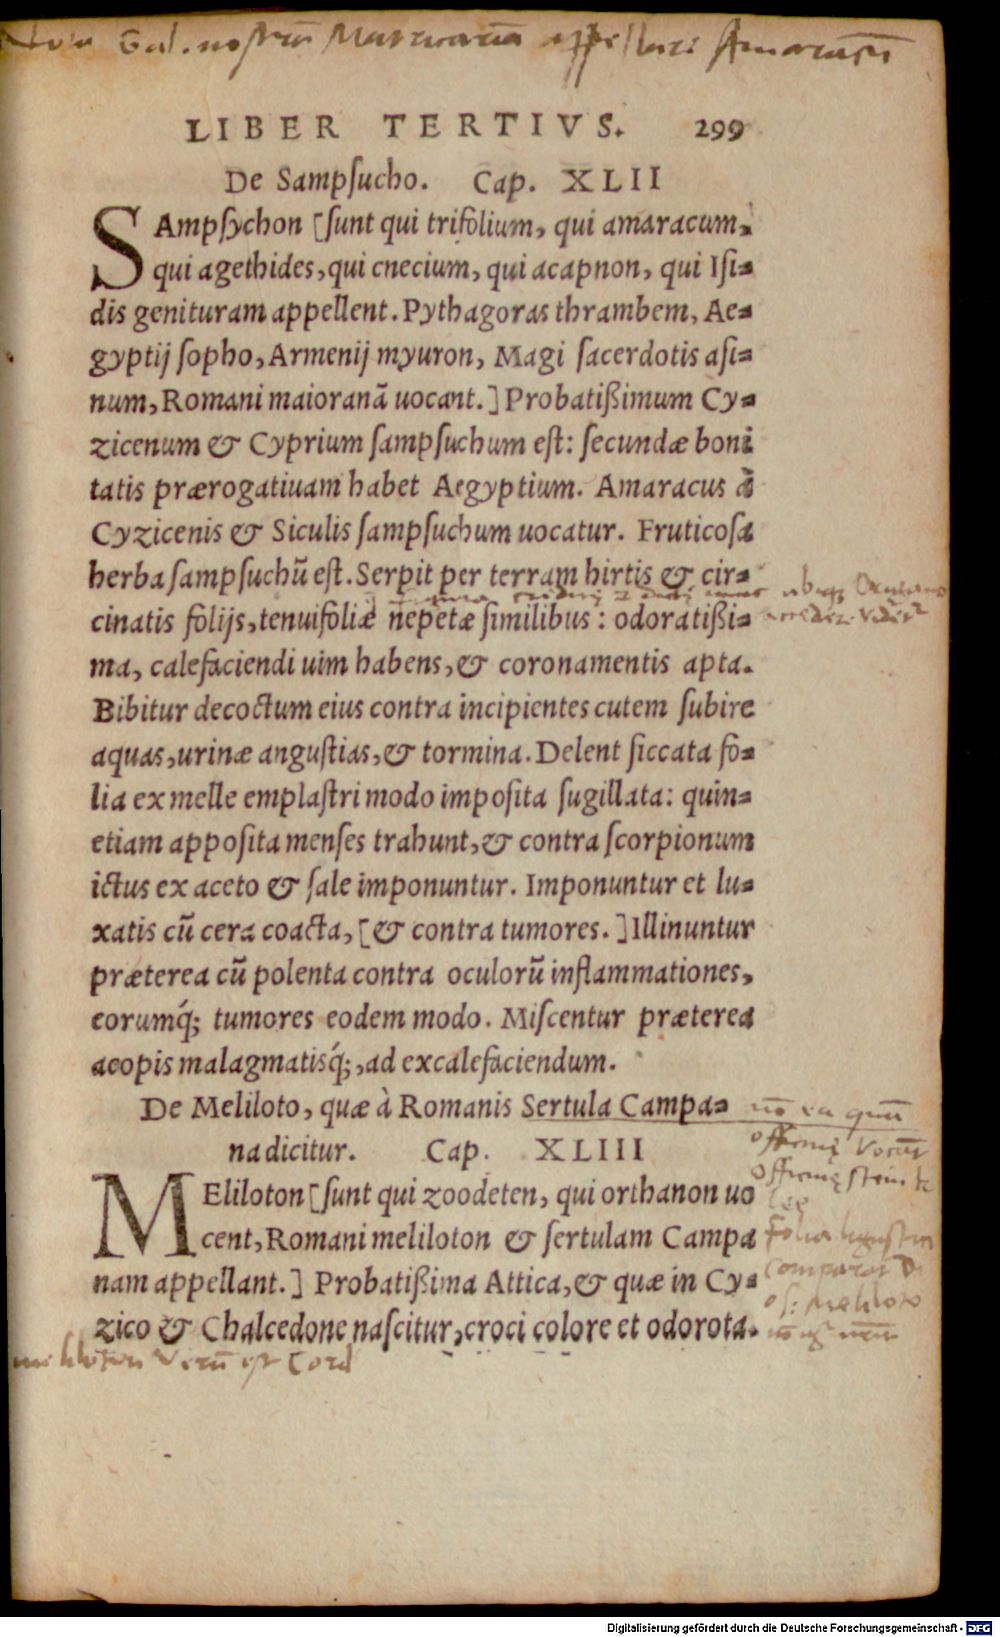 Gal. nostram appellari Amaracum
LIBER TERTIVS. 299
De Sampſucho. Cap. XLII
SAmpſychon [ſunt qui trifolium, qui amaracum,
qui agethides, qui cnecium, qui acapnon, qui Iſi-
dis genituram appellent. Pythagoras thrambem, Ae-
gyptij ſopho, Armenij myuron, Magi ſacerdotis aſi-
num, Romani maioranã uocant.] Probatißimum Cy-
zicenum & Cyprium ſampſuchum eſt: ſecundæ boni
tatis prærogatiuam habet Aegyptium. Amaracus à
Cyzicenis & Siculis ſampſuchum uocatur. Fruticoſa
herba ſampſuchũ eſt. Serpit per terram hirtis & cir-
cinatis folijs, tenuifoliæ nepetæ ſimilibus: odoratißi-
ma, calefaciendi uim habens, & coronamentis apta.
Bibitur decoctum eius contra incipientes cutem ſubire
aquas, urinæ anguſtias, & tormina. Delent ſiccata fo-
lia ex melle emplaſtri modo impoſita ſugillata: quin-
etiam appoſita menſes trahunt, & contra ſcorpionum
ictus ex aceto & ſale imponuntur. Imponuntur et lu-
xatis cũ cera coacta, [& contra tumores.] Illinuntur
præterea cũ polenta contra oculorũ inflammationes,
eorumq́; tumores eodem modo. Miſcentur præterea
acopis malagmatisq́;, ad excalefaciendum.
De Meliloto, quæ à Romanis Sertula Campa-
na dicitur. Cap. XLIII
MEliloton [ſunt qui zoodeten, qui orthanon uo
cent, Romani meliloton & ſertulam Campa
nam appellant.] Probatißima Attica, & quæ in Cy-
zico & Chalcedone naſcitur, croci colore et odorota.
Folia
Meliloto
Verũ est Cord
Digitalisierung gefördert durch die Deutsche Forschungsgemeinschaft - DFG